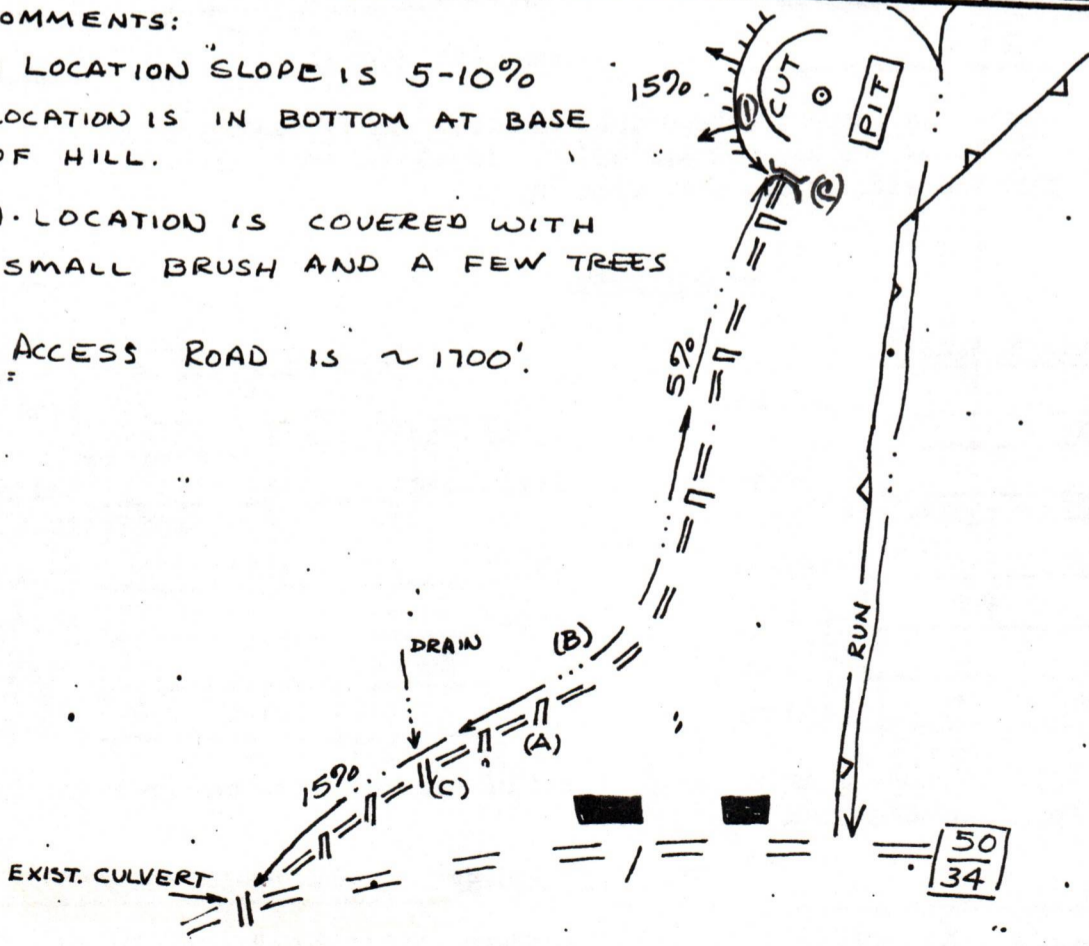 OMMENTS:
LOCATION SLOPE IS 5-10%
LOCATION IS IN BOTTOM AT BASE
OF HILL.
). LOCATION IS COVERED WITH
SMALL BRUSH AND A FEW TREES
ACCESS ROAD IS ~ 1700'.
15%
CUT
PIT
(C)
5%
RUN
DRAIN
(B)
(A)
(C)
15%
EXIST. CULVERT
50
34